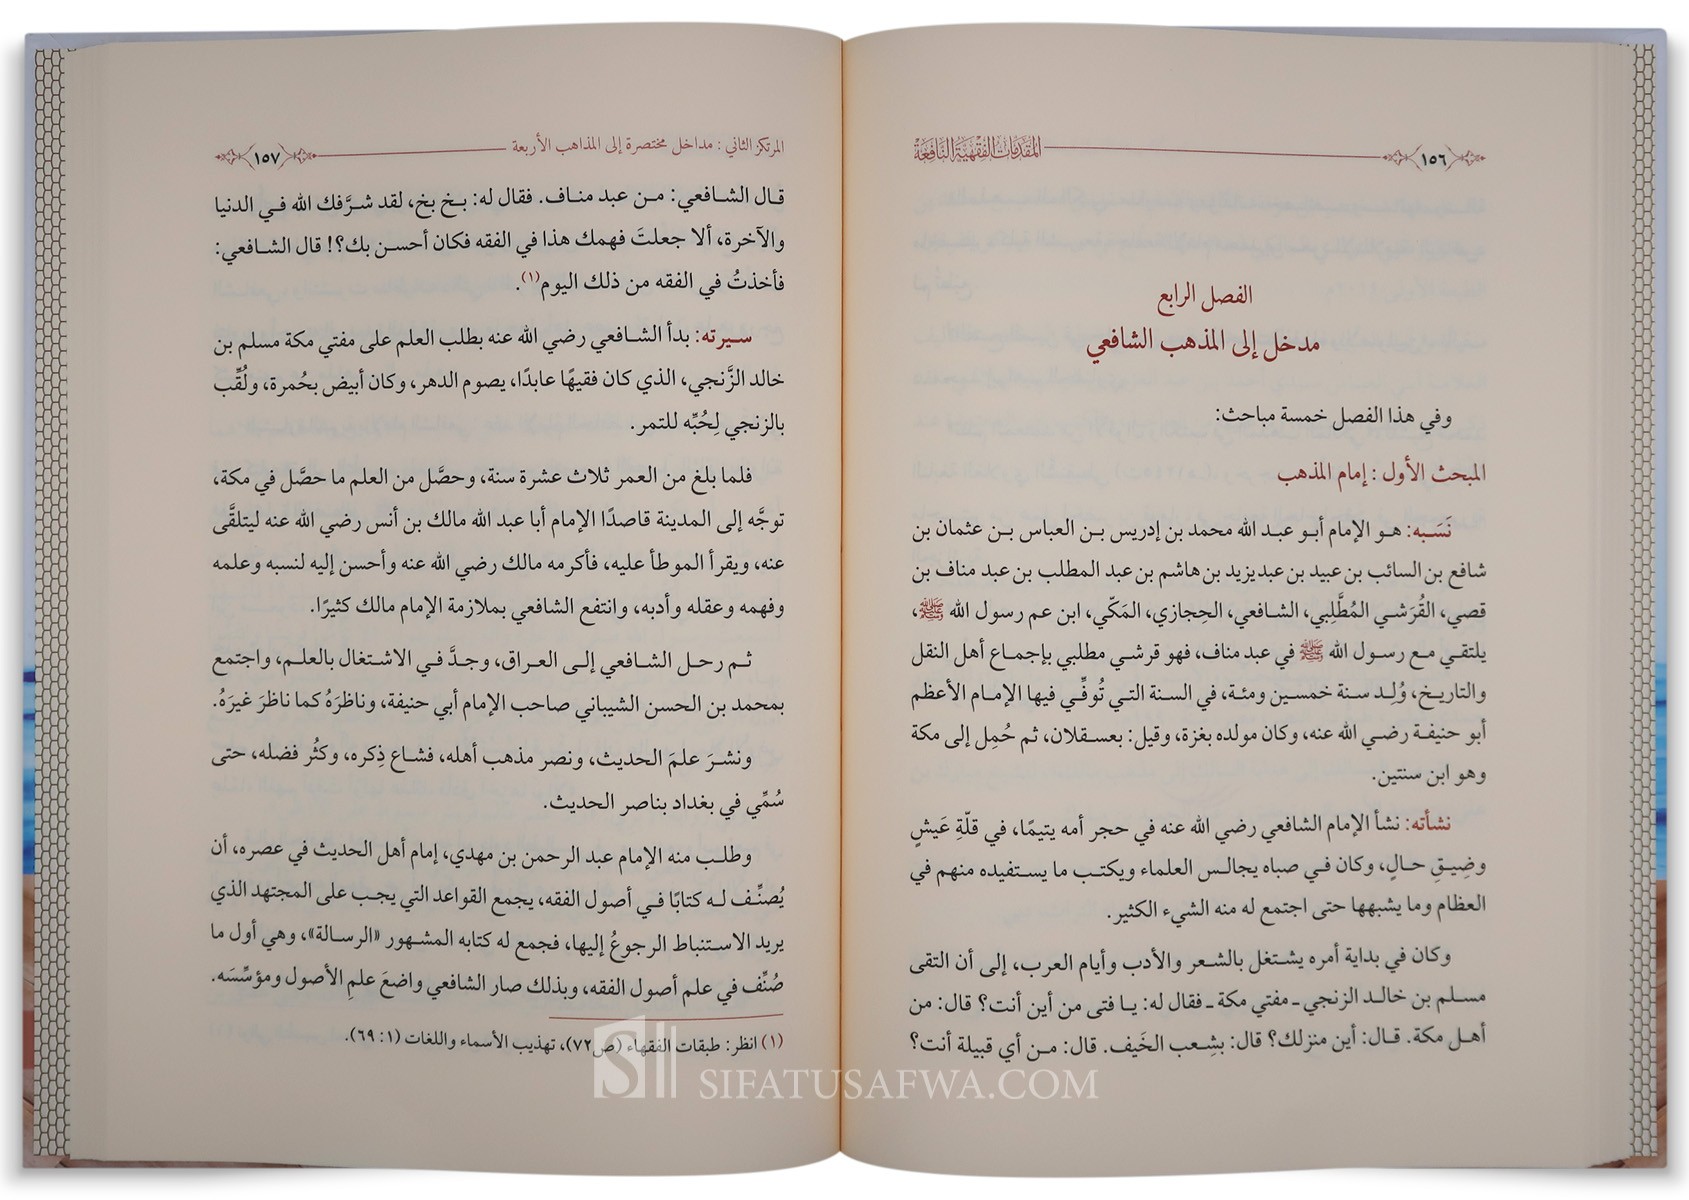 ١٥٦
المقدمات الفقهية النافعة
الفصل الرابع
مدخل إلى المذهب الشافعي
وفي هذا الفصل خمسة مباحث:
المبحث الأول : إمام المذهب
نَسَبه: هـو الإمام أبـو عبـد الله محمد بن إدريس بـن العباس بـن عثمان بن
شافع بن السائب بن عبيد بن عبديزيد بن هاشم بن عبد المطلب بن عبد مناف بن
قصي، القُرَشي المُطَّلِبي، الشافعي، الحجازي، المَكّي، ابن عم رسول الله ﷺ،
يلتقي مع رسول الله ﷺ في عبد مناف، فهو قرشي مطلبي بإجماع أهل النقل
والتاريخ، وُلِد سنة خمسين ومئة، في السنة التي تُوفِّي فيها الإمام الأعظم
أبو حنيفة رضي الله عنه، وكان مولده بغزة، وقيل: بعسقلان، ثم حُمِل إلى مكة
وهو ابن سنتين.
نشأته: نشأ الإمام الشافعي رضي الله عنه في حجر أمه يتيمًا، في قلّةِ عَيشٍ
وضِيقِ حالٍ، وكان في صباه يجالس العلماء ويكتب ما يستفيده منهم في
العظام وما يشبهها حتى اجتمع له منه الشيء الكثير.
وكان في بداية أمره يشتغل بالشعر والأدب وأيام العرب، إلى أن التقى
مسلم بن خالد الزنجي ـ مفتي مكة ـ فقال له: يا فتى من أين أنت؟ قال: من
أهل مكة. قال: أين منزلك؟ قال: بشِعب الخَيف. قال: من أي قبيلة أنت؟
المرتكز الثاني : مداخل مختصرة إلى المذاهب الأربعة
١٥٧
قال الشافعي: من عبد مناف. فقال له: بخ بخ، لقد شرَّفك الله في الدنيا
والآخرة، ألا جعلتَ فهمك هذا في الفقه فكان أحسن بك؟! قال الشافعي:
فأخذتُ في الفقه من ذلك اليوم(١).
سيرته: بدأ الشافعي رضي الله عنه بطلب العلم على مفتي مكة مسلم بن
خالد الزَّنجي، الذي كان فقيهًا عابدًا، يصوم الدهر، وكان أبيض بحُمرة، ولُقِّب
بالزنجي لِحُبِّه للتمر.
فلما بلغ من العمر ثلاث عشرة سنة، وحصَّل من العلم ما حصَّل في مكة،
توجَّه إلى المدينة قاصدًا الإمام أبا عبد الله مالك بن أنس رضي الله عنه ليتلقَّى
عنه، ويقرأ الموطأ عليه، فأكرمه مالك رضي الله عنه وأحسن إليه لنسبه وعلمه
وفهمه وعقله وأدبه، وانتفع الشافعي بملازمة الإمام مالك كثيرًا.
ثم رحل الشافعي إلى العراق، وجدَّ في الاشتغال بالعلم، واجتمع
بمحمد بن الحسن الشيباني صاحب الإمام أبي حنيفة، وناظرَهُ كما ناظرَ غيرَهُ.
ونشرَ علمَ الحديث، ونصر مذهب أهله، فشاع ذِكره، وكثُر فضله، حتى
سُمِّي في بغداد بناصر الحديث.
وطلب منه الإمام عبد الرحمن بن مهدي، إمام أهل الحديث في عصره، أن
يُصنِّف له كتابًا في أصول الفقه، يجمع القواعد التي يجب على المجتهد الذي
يريد الاستنباط الرجوعُ إليها، فجمع له كتابه المشهور «الرسالة»، وهي أول ما
صُنِّف في علم أصول الفقه، وبذلك صار الشافعي واضعَ علمِ الأصول ومؤسِّسَه.
(١) انظر: طبقات الفقهاء (ص٧٢)، تهذيب الأسماء واللغات (١: ٦٩).
SIFATUSAFWA.COM